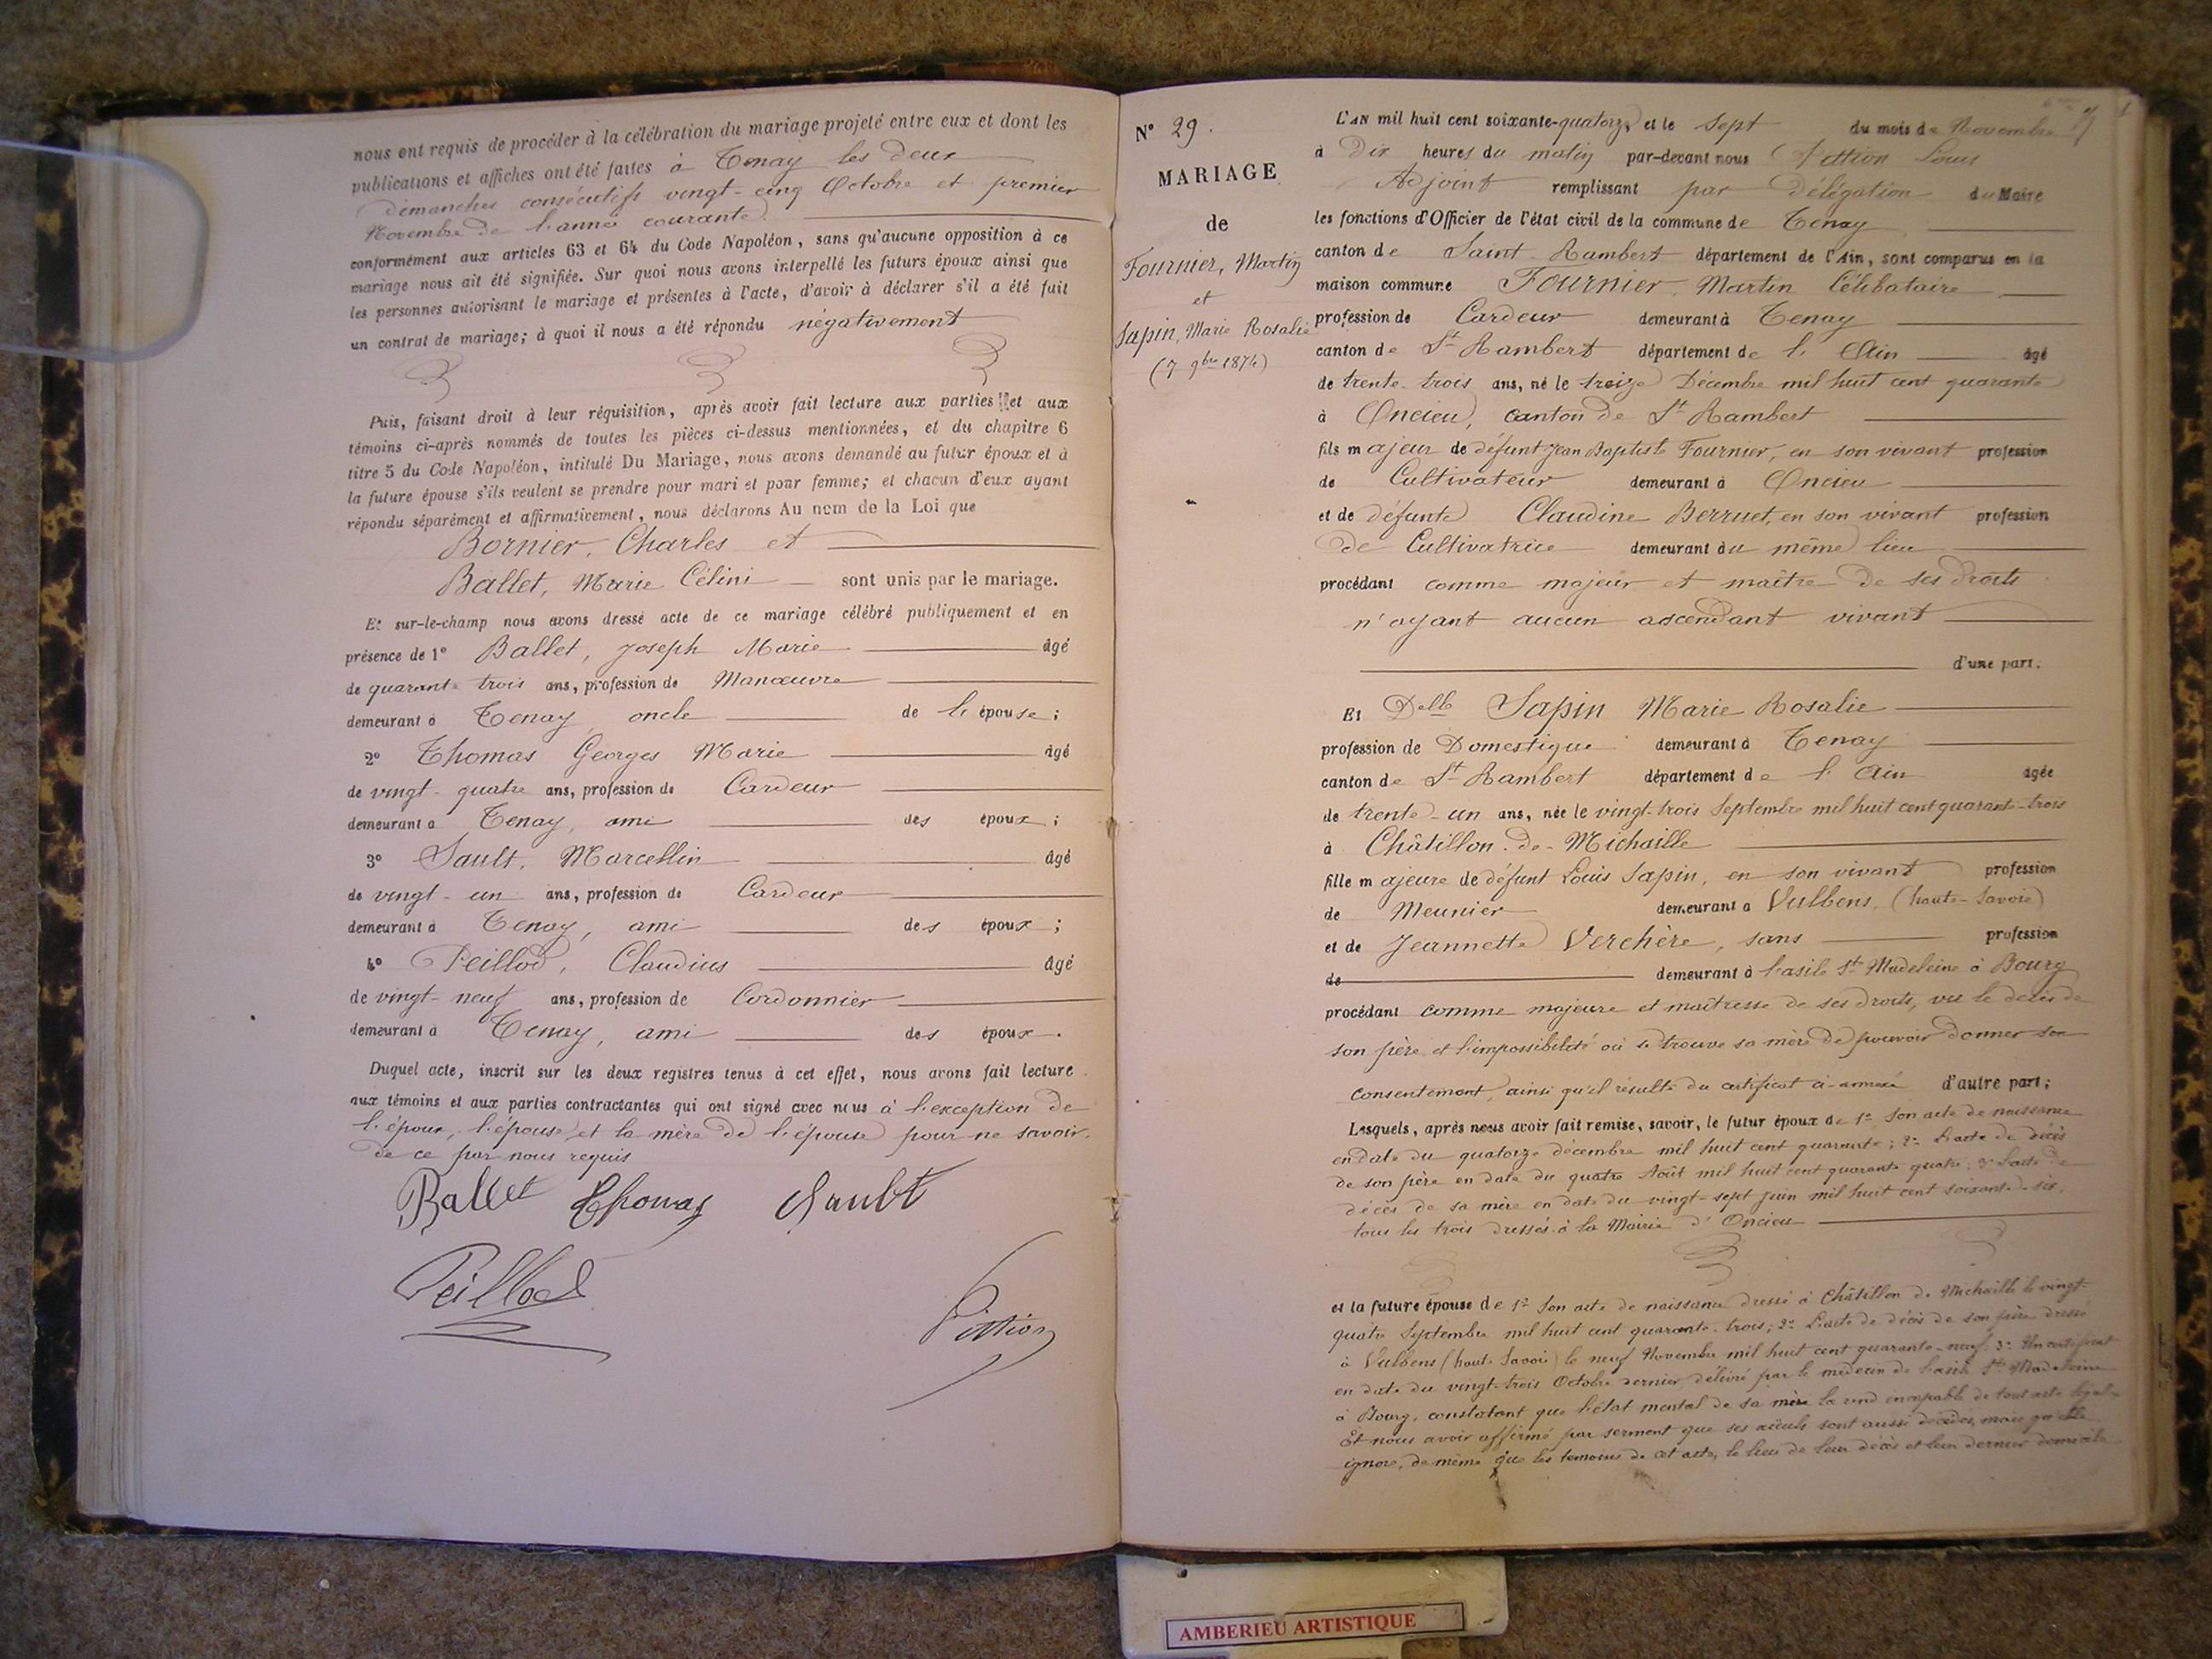 nous ont requis de procéder à la célébration du mariage projeté entre eux et dont les
publications et affiches ont été faites à Tenay les deux
dimanches consécutifs vingt-cinq Octobre et premier
Novembre de l'année courante.
conformément aux articles 63 et 64 du Code Napoléon, sans qu'aucune opposition à ce
mariage nous ait été signifiée. Sur quoi nous avons interpellé les futurs époux ainsi que
les personnes autorisant le mariage et présentes à l'acte, d'avoir à déclarer s'il a été fait
un contrat de mariage; à quoi il nous a été répondu négativement
Puis, faisant droit à leur réquisition, après avoir fait lecture aux parties et aux
témoins ci-après nommés de toutes les pièces ci-dessus mentionnées, et du chapitre 6
titre 5 du Code Napoléon, intitulé Du Mariage, nous avons demandé au futur époux et à
la future épouse s'ils veulent se prendre pour mari et pour femme; et chacun d'eux ayant
répondu séparément et affirmativement, nous déclarons Au nom de la Loi que
Bornier, Charles et
Ballet, Marie Célini sont unis par le mariage.
Et sur-le-champ nous avons dressé acte de ce mariage célébré publiquement et en
présence de 1° Ballet, Joseph Marie âgé
de quarante trois ans, profession de Manœuvre
demeurant à Tenay, oncle de l'épouse;
2° Thomas Georges Marie âgé
de vingt-quatre ans, profession de Cardeur
demeurant à Tenay, ami des époux;
3° Sault, Marcellin âgé
de vingt-un ans, profession de Cardeur
demeurant à Tenay, ami des époux;
4° Peillod, Claudius âgé
de vingt-neuf ans, profession de Cordonnier
demeurant à Tenay, ami des époux.
Duquel acte, inscrit sur les deux registres tenus à cet effet, nous avons fait lecture
aux témoins et aux parties contractantes qui ont signé avec nous à l'exception de
l'époux, l'épouse et la mère de l'épouse pour ne savoir.
de ce par nous requis
Ballet Thomas Sault
Peillod
Pittion
N° 29.
MARIAGE
de
Fournier, Martin
et
Sapin, Marie Rosalie
(7 9bre 1874)
L'AN mil huit cent soixante-quatorze et le sept du mois de Novembre
à Dix heures du matin par-devant nous Pittion Louis
Adjoint remplissant par délégation du Maire
les fonctions d'Officier de l'état civil de la commune de Tenay
canton de Saint-Rambert département de l'Ain, sont comparus en la
maison commune Fournier Martin Célibataire
profession de Cardeur demeurant à Tenay
canton de St Rambert département de l'Ain âgé
de trente-trois ans, né le treize Décembre mil huit cent quarante
à Oncieu, canton de St Rambert
fils majeur de défunt Jean Baptiste Fournier, en son vivant profession
de Cultivateur demeurant à Oncieu
et de défunte Claudine Berruet, en son vivant profession
de Cultivatrice demeurant du même lieu
procédant comme majeur et maître de ses droits
n'ayant aucun ascendant vivant
d'une part.
Et Delle Sapin Marie Rosalie
profession de Domestique demeurant à Tenay
canton de St Rambert département de l'Ain âgée
de trente-un ans, née le vingt-trois Septembre mil huit cent quarante-trois
à Châtillon-de-Michaille
fille majeure de défunt Louis Sapin, en son vivant profession
de Meunier demeurant à Vulbens, (haute-Savoie)
et de Jeannette Verchère, sans profession
de demeurant à l'asile Ste Madeleine à Bourg
procédant comme majeure et maîtresse de ses droits, vu le décès de
son père et l'impossibilité où se trouve sa mère de pouvoir donner son
consentement, ainsi qu'il résulte du certificat ci-annexé d'autre part;
Lesquels, après nous avoir fait remise, savoir, le futur époux de 1° Son acte de naissance
en date du quatorze décembre mil huit cent quarante; 2° L'acte de décès
de son père en date du quatre Août mil huit cent quarante quatre; 3° L'acte de
décès de sa mère en date du vingt-sept juin mil huit cent soixante-six.
tous les trois dressés à la Mairie d'Oncieu
et la future épouse de 1° Son acte de naissance dressé à Châtillon de Michaille le vingt-
quatre Septembre mil huit cent quarante-trois; 2° L'acte de décès de son père dressé
à Vulbens (haute Savoie) le neuf Novembre mil huit cent quarante-neuf; 3° Un certificat
en date du vingt-trois Octobre dernier délivré par le médecin de l'asile Ste Madeleine
à Bourg, constatant que l'état mental de sa mère la rend incapable de tout acte légal
Et nous avoir affirmé par serment que ses aïeuls sont aussi décédés, mais qu'elle
ignore, de même que les témoins de cet acte, le lieu de leur décès et leur dernier domicile
AMBERIEU ARTISTIQUE